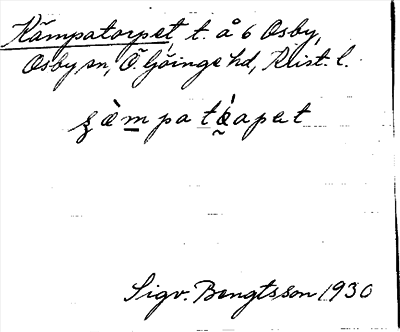 Kämpatorpet t. å 6 Osby,
Osby sn, Ö Göinge hd, Krist. l.
Sigv. Bengtsson 1930